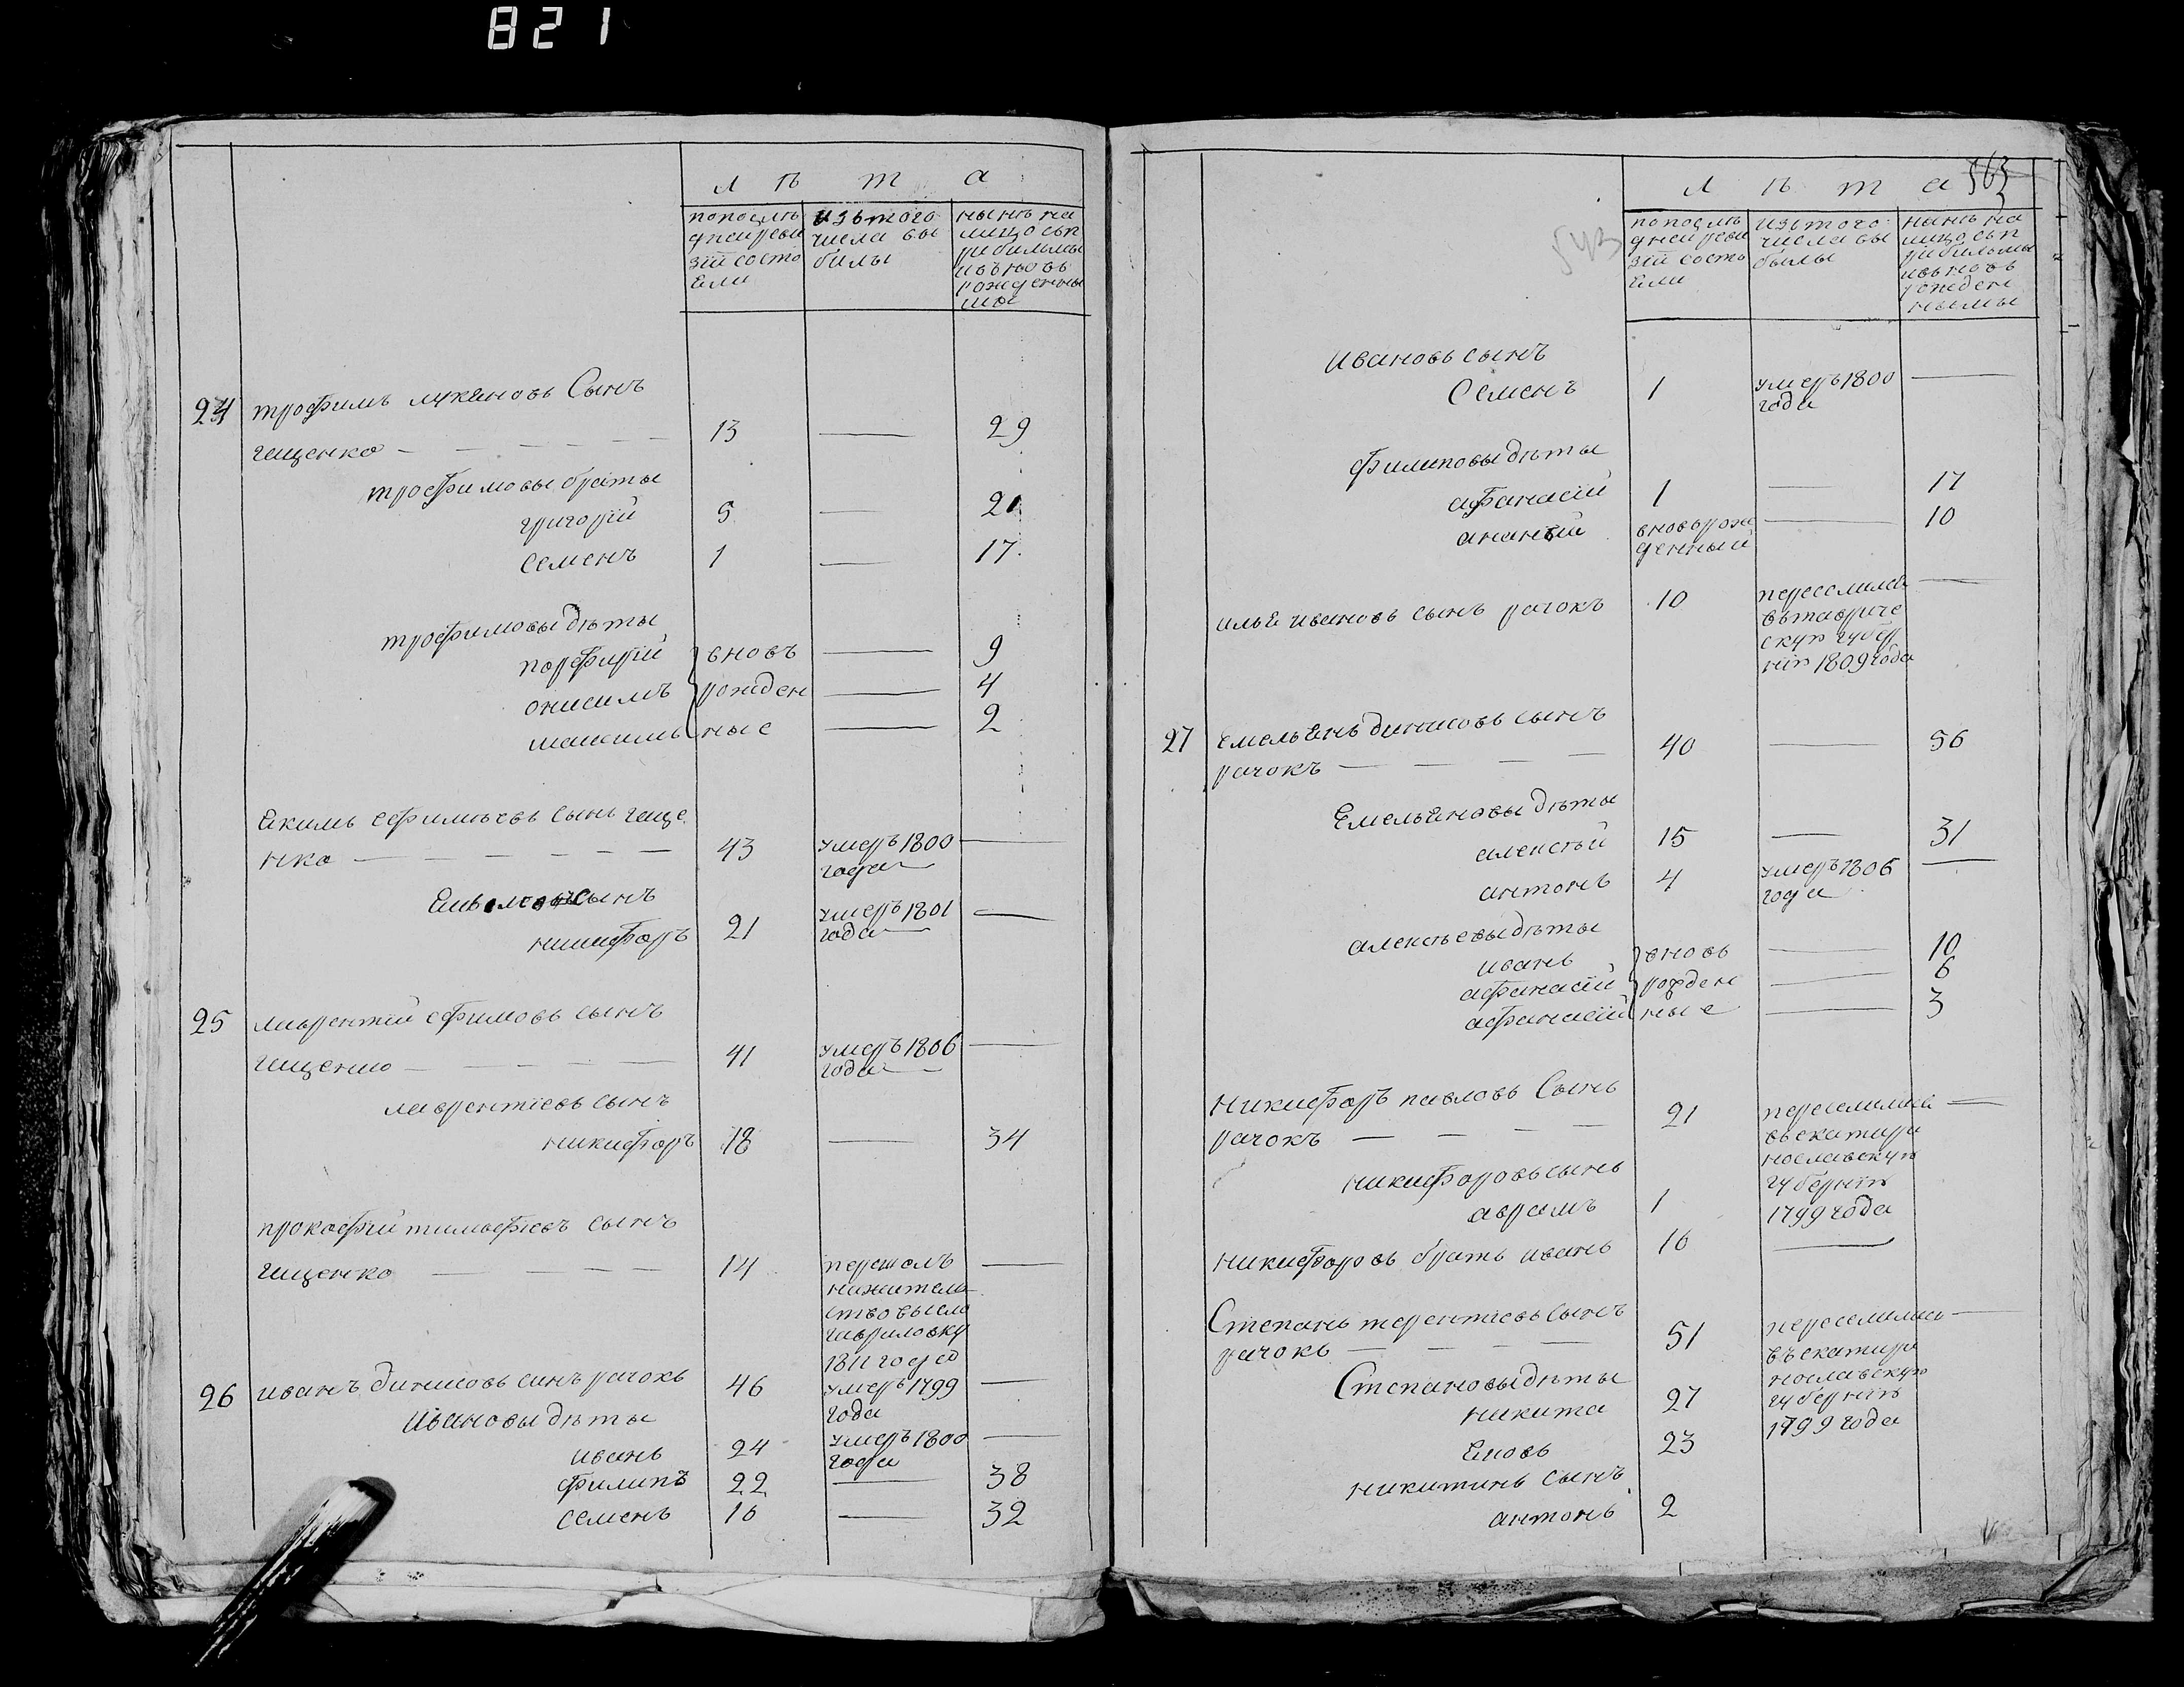 821
л ѣ т а
попослѣ
днейреви
зіи состо
яли
изътого
числа вы
были
нынѣ на
лицо съп
рибылымы
ивъновь
рожденны
мы
24 трофимъ лукяновъ Сынъ
гищенко — 13 — 29
трофимовы браты
григорій 5 — 21
семенъ 1 — 17
трофимовы дѣты
порфирій вновъ — 9
онисимъ рожден — 4
максимъ ные — 2
Якимъ ефимѣевъ сынъ гище
нко — 43 умеръ 1800 —
года
сынъ
никифоръ 21 умеръ 1801 —
года
25 лаврентій ефимовъ сынъ
гищенко — 41 умеръ 1806 —
года
лаврентіевъ сынъ
никифоръ 18 — 34
прокофій тимофіевъ сынъ
гищенко — 14 перешолъ —
нажители
ство высло
гавриловку
1811 году
26 иванъ динисовъ синъ рачокъ 46 умеръ 1799 —
года
Ивановы дѣты
иванъ 24 умеръ 1800 —
года
филипъ 22 — 38
семенъ 16 — 32
л ѣ т а 563
543
попослѣ
днейреви
зіи состо
яли
изътого
числа вы
былы
нынѣ на
лицо съп
рибылымы
ивъновь
рожден
нымы
ивановъ сынъ
Семенъ 1 умеръ 1800 —
года
филиповы дѣты
афанасій 1 — 17
ананѣй вновърож — 10
денный
илья ивановъ сынъ рачокъ 10 переселился —
втавриче
скую губер
нію 1809 года
27 емельянъ динисовъ сынъ
рачокъ — 40 — 56
Емельяновы дѣты
алексѣй 15 — 31
антонъ 4 умеръ 1806 —
года
алексѣевы дѣты
иванъ вновь — 10
афанасій рожден — 6
афанасій ные — 3
Никифоръ павловъ Сынъ
рачокъ — 21 переселился —
въекатири
нославскую
губернію
1799 года
никифоровъ сынъ
аврамъ 1
никифоровъ братъ иванъ 16 —
Степанъ терентіевъ сынъ
рачокъ — 51 переселились —
въекатири
нославскую
губернію
1799 года
Степановы дѣты
никита 27
Яковъ 23
никитинъ сынъ
антонъ 2